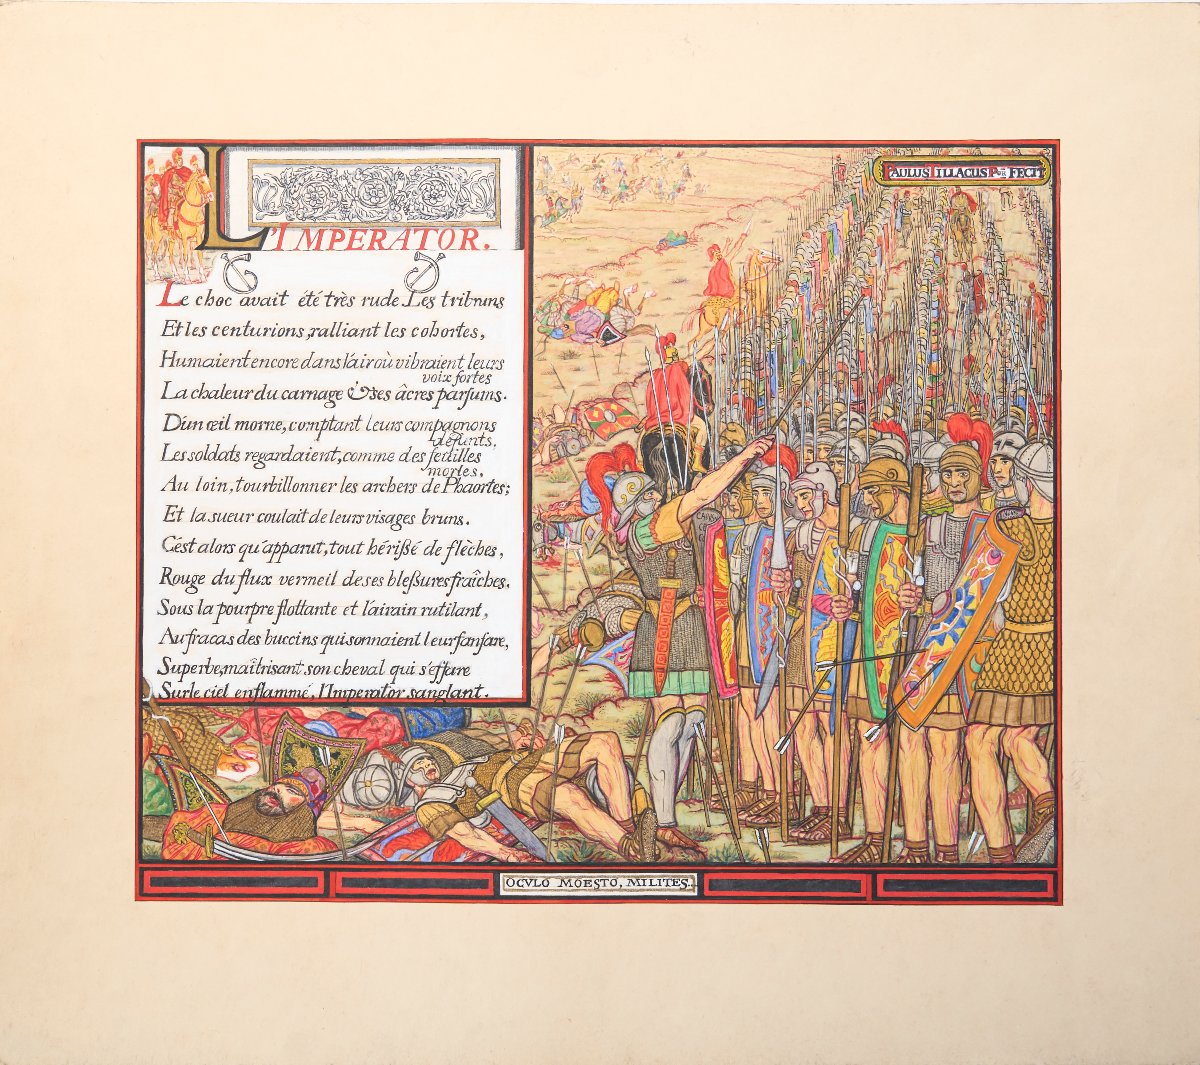 L'IMPERATOR.
Le choc avait été très rude. Les tribuns
Et les centurions, ralliant les cohortes,
Humaient encore dans l'air où vibraient leurs
voix fortes
La chaleur du carnage & ses âcres parfums.
D'un œil morne, comptant leurs compagnons
défunts,
Les soldats regardaient, comme des feuilles
mortes,
Au loin, tourbillonner les archers de Phaortes;
Et la sueur coulait de leurs visages bruns.
C'est alors qu'apparut, tout hérißé de flèches,
Rouge du flux vermeil de ses bleßures fraîches,
Sous la pourpre flottante et l'airain rutilant,
Au fracas des buccins qui sonnaient leur fanfare,
Superbe, maîtrisant son cheval qui s'effare
Sur le ciel enflammé, l'Imperator sanglant.
PAULUS TILLACUS FECIT
OCVLO MOESTO, MILITES.